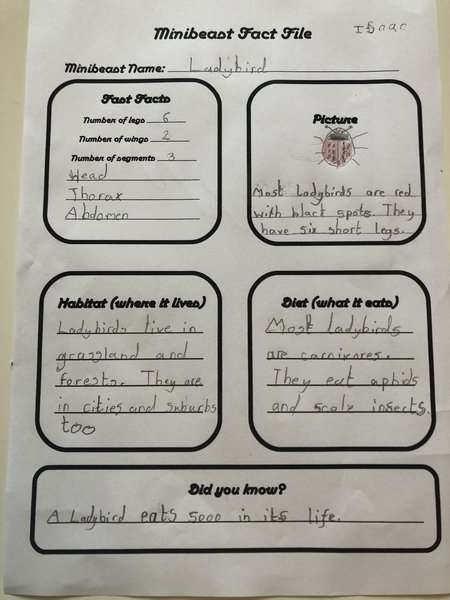 Minibeast Fact File
Isaac
Minibeast Name: Ladybird
Fast Facts
Number of legs 6
Number of wings 2
Number of segments 3
Head
Thorax
Abdomen
Picture
Most ladybirds are red
with black spots. They
have six short legs.
Habitat (where it lives)
Ladybirds live in
grassland and
forests. They are
in cities and suburbs
too
Diet (what it eats)
Most ladybirds
are carnivores.
They eat aphids
and scale insects.
Did you know?
A Ladybird eats 5000 in its life.